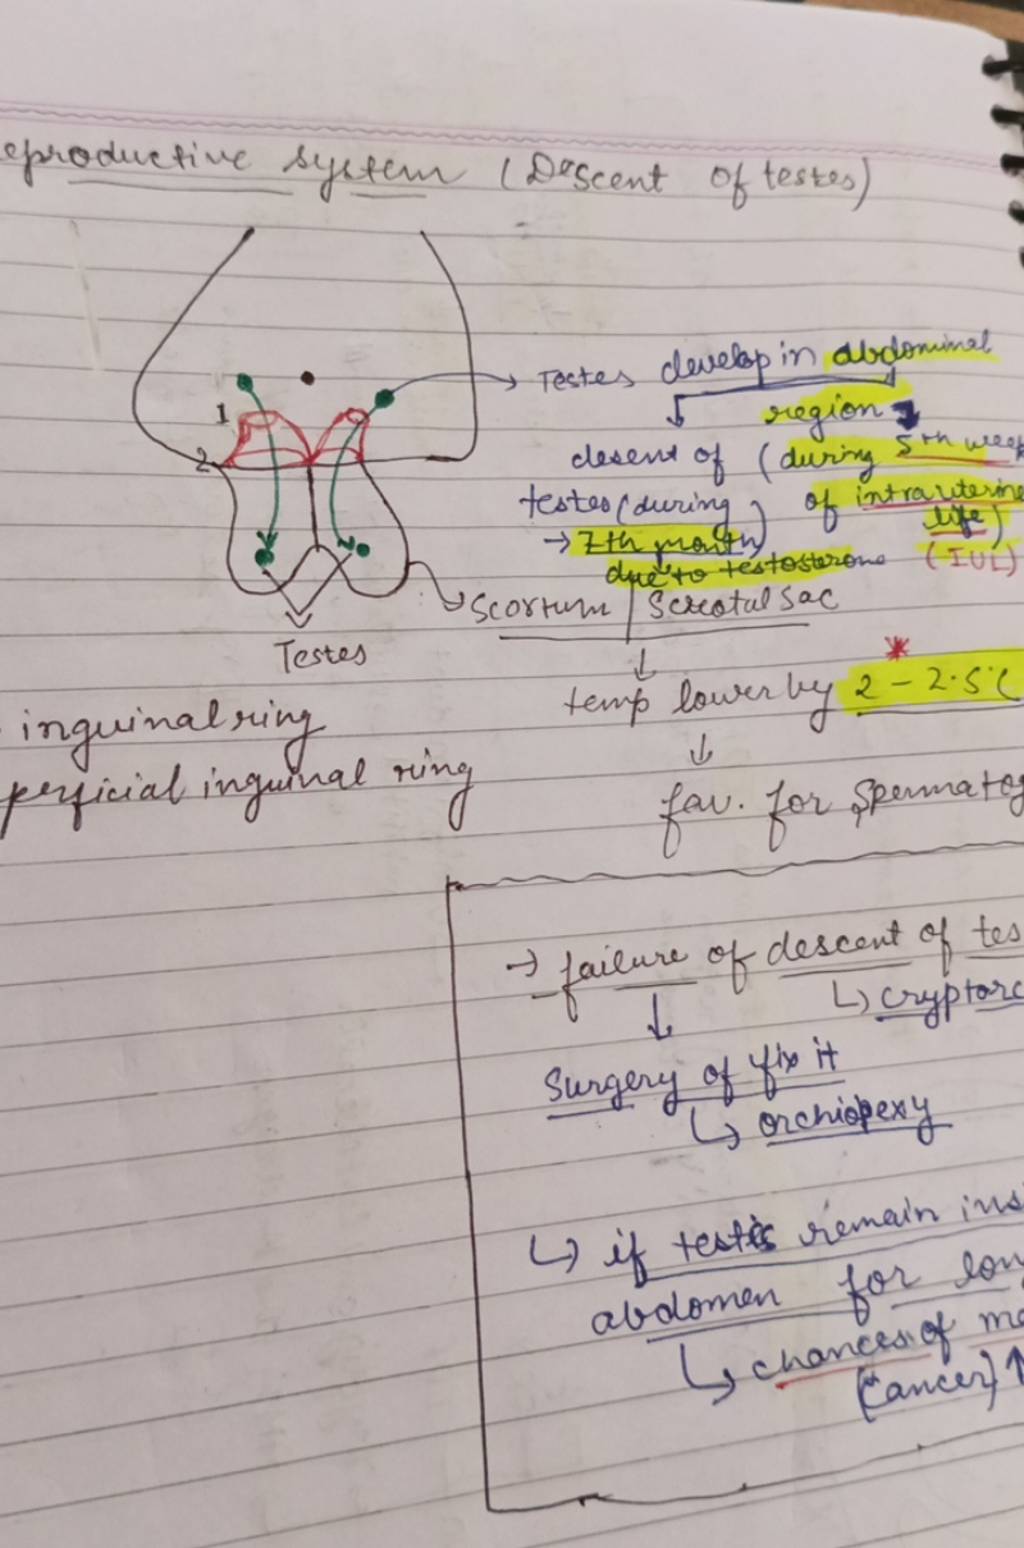 eproductive system (Descent of testes)
1
2
→ Testes develop in abdominal
region
desent of (during 5th week
testes (during) of intrauterine
→ 7th month life)
due to testosterone (IUL)
Scortum | Scrotal sac
Testes
temp lower by 2 - 2.5°C
*
inguinal ring
perficial inguinal ring
fav. for spermatog
→ failure of descent of tes
↳ cryptorc
Surgery of fix it
↳ orchiopexy
↳ if testis remain insi
abdomen for lon
↳ chances of ma
(cancer) ↑